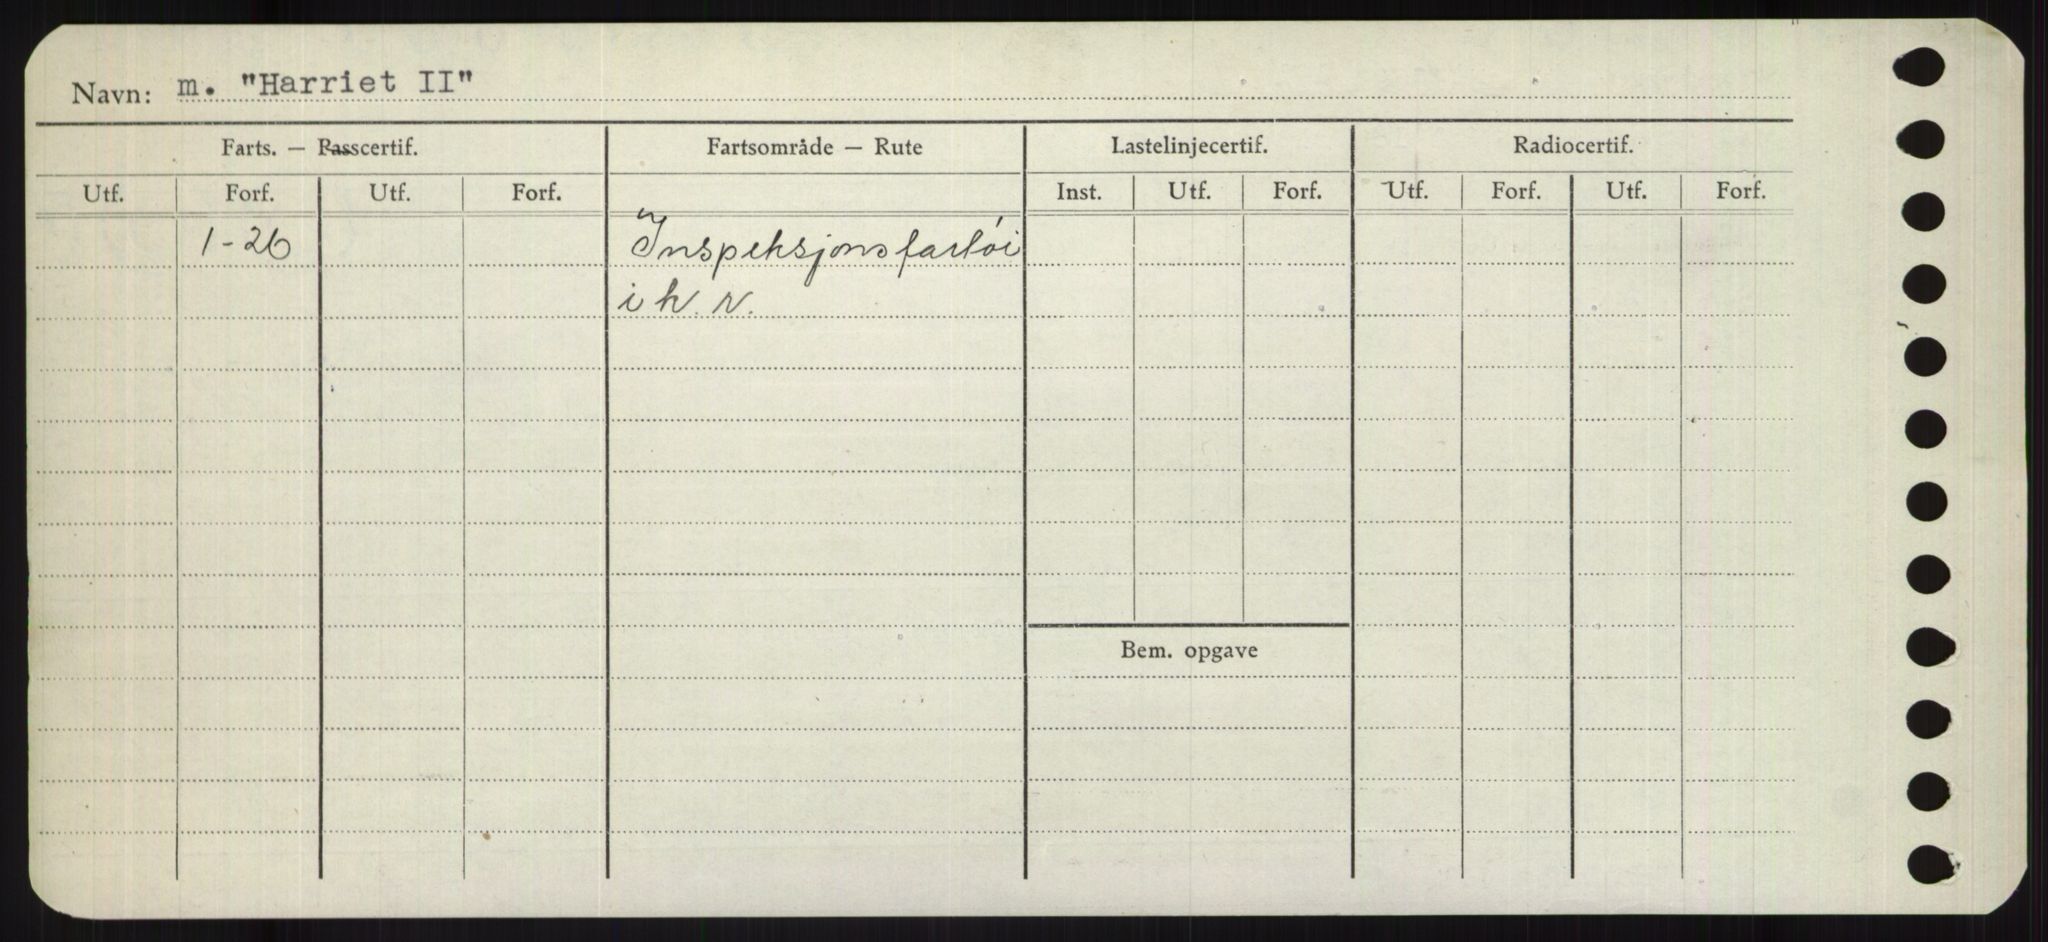 Navn: m. "Harriet II"
Farts. — Passcertif. Fartsområde — Rute Lastelinjecertif. Radiocertif.
Utf. Forf. Utf. Forf. Inst. Utf. Forf. Utf. Forf. Utf. Forf.
1-26 Inspeksjonsfartøi
i k. v.
Bem. opgave